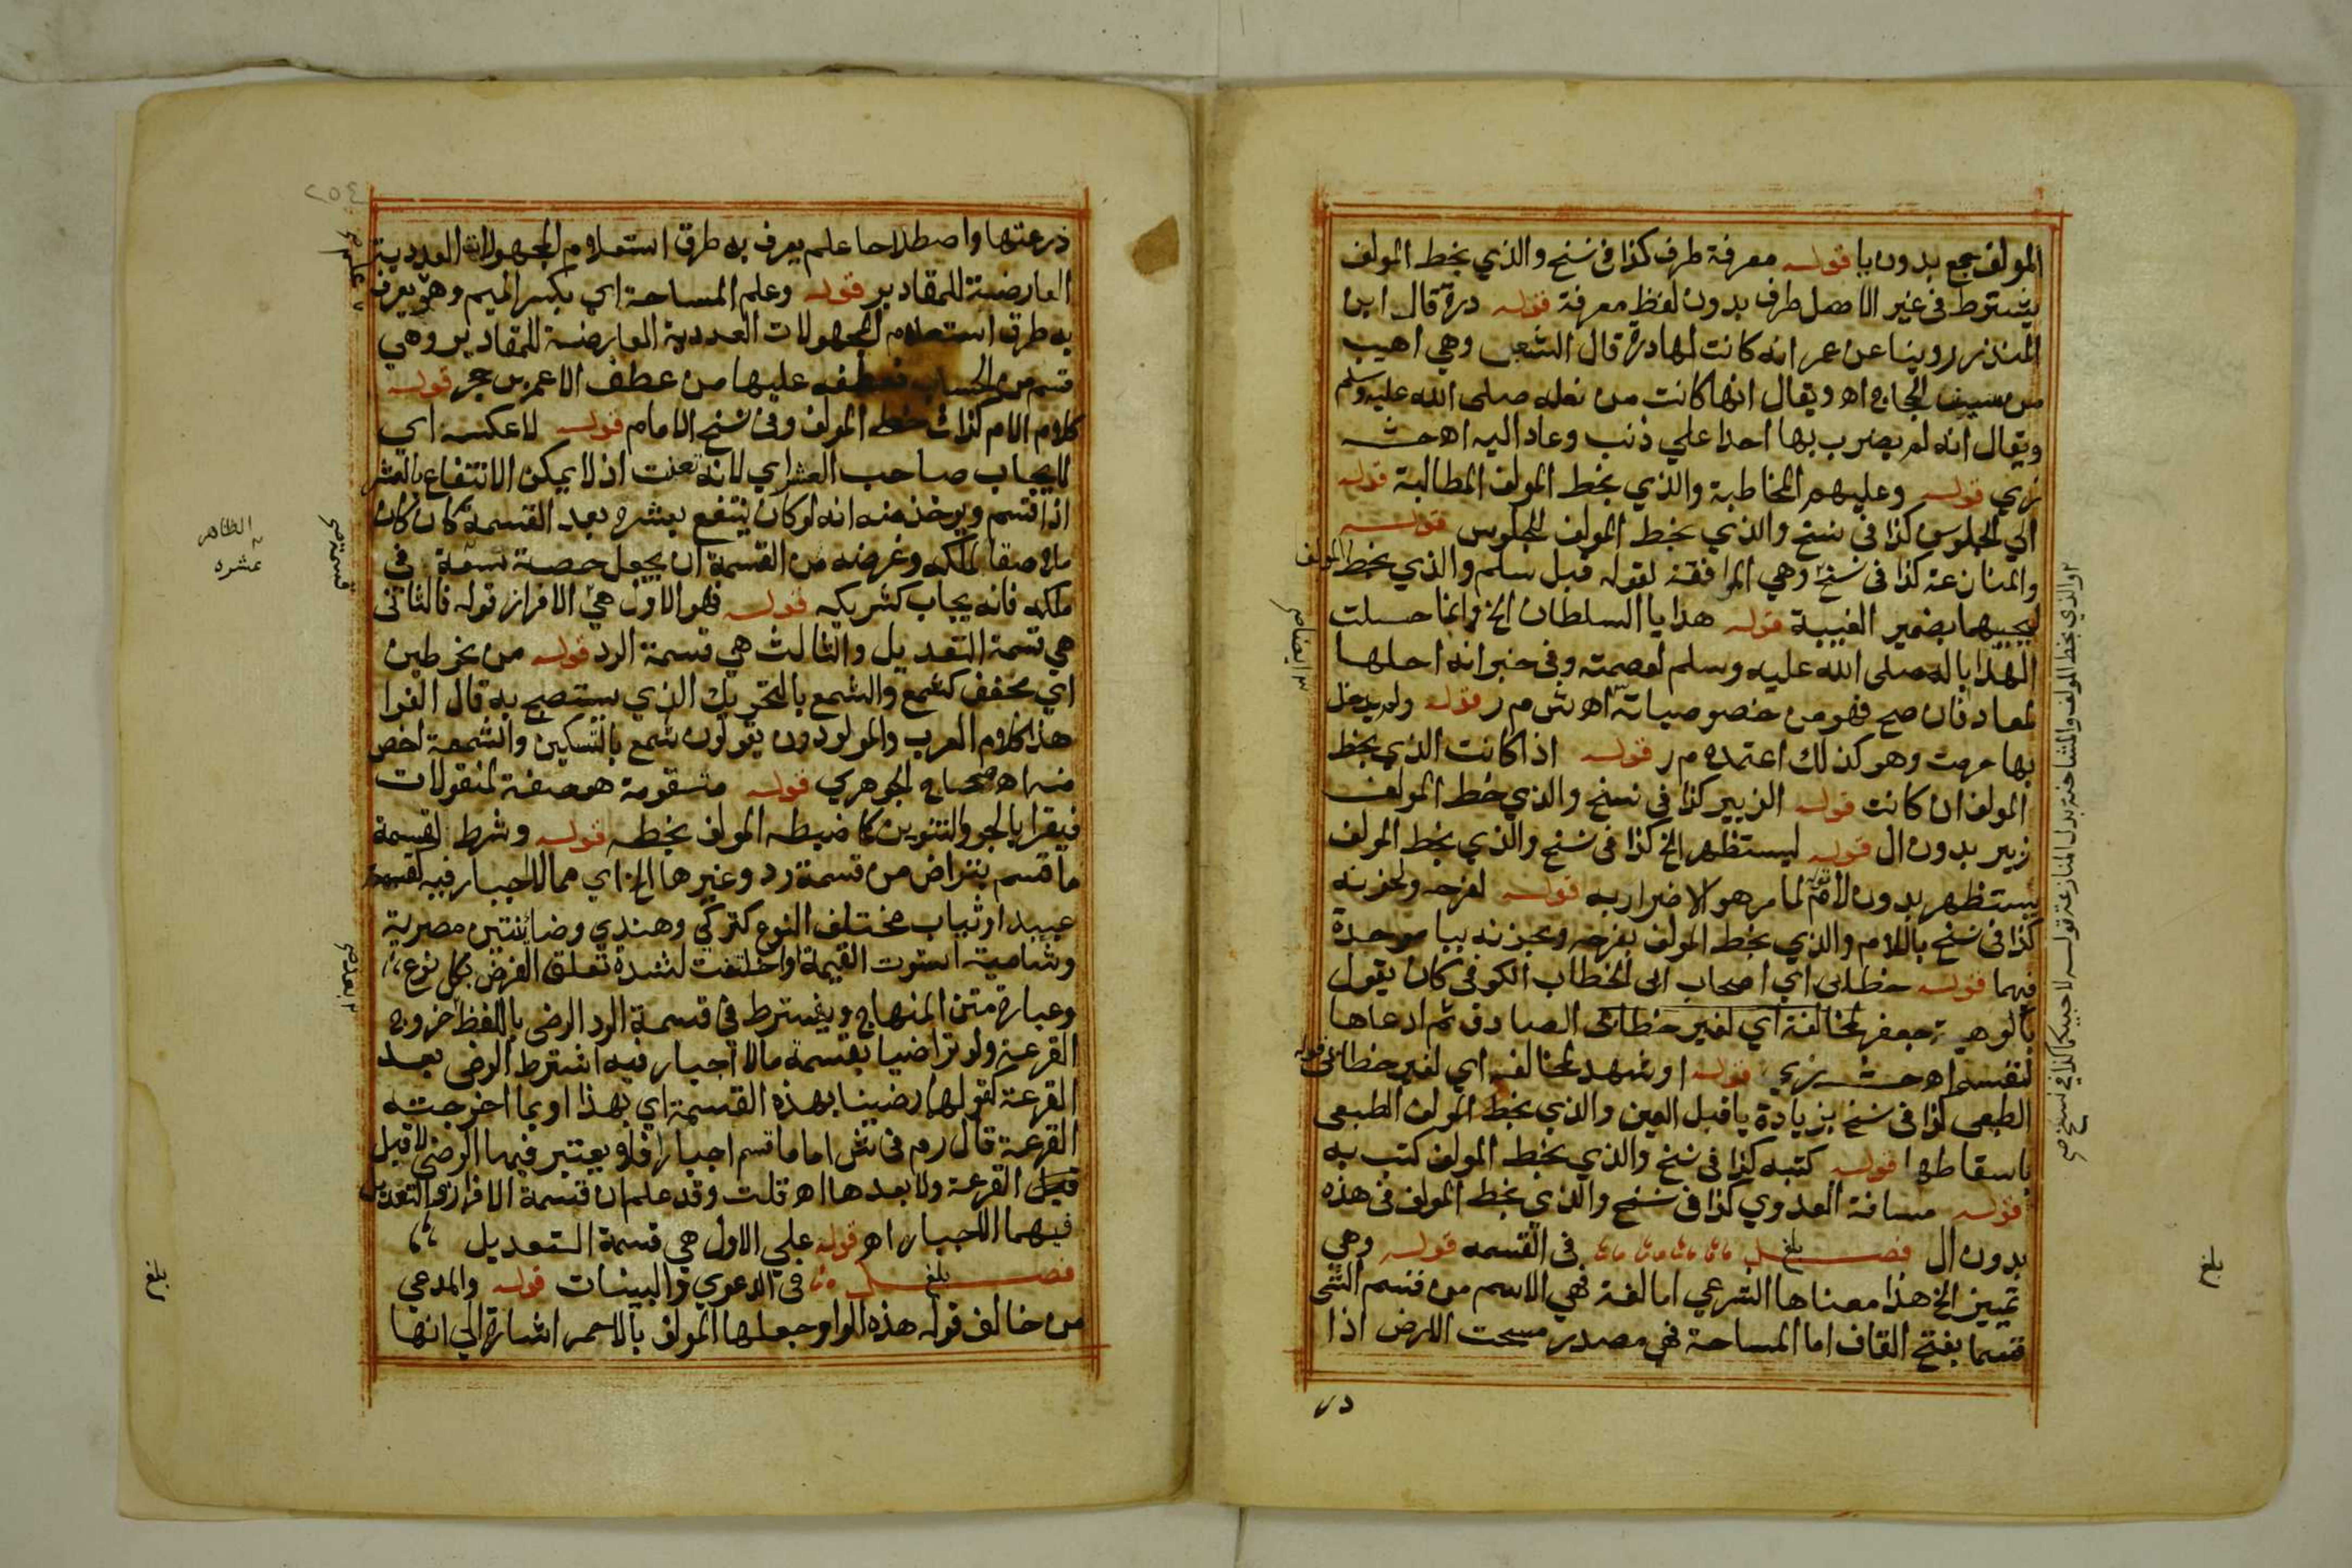 المولف بجمع بدون با قوله معرفة طرف كذا في نسخ والذي بخط المولف
يشترط في غير الاصل طرف بدون لفظ معرفة قوله درة قال ابن
المنذر روينا عن عمر انه كانت لها درة قال الشعبي وهي اهيب
من سيف الحجاج اه ويقال انها كانت من نعله صلى الله عليه وسلم
ويقال انه لم يضرب بها احدا علي ذنب وعاد اليه اه حشـ
زي قوله وعليهم المخاطبة والذي بخط المولف المطالبة قوله
الي الجلوس كذا في نسخ والذي بخط المولف للجلوس قوله
والمنازعة كذا في نسخ وهي الموافقة لقوله قبل سلم والذي بخط المولف
يجيبهما بضمير الغيبة قوله هدايا السلطان الخ وانما حلت
الهدايا له صلى الله عليه وسلم لعصمته وفي خبر انه احلها
لمعاد فان صح فهو من خصوصياته اه ش م ر قوله ولم يدخل
بها حرمت وهو كذلك اعتمده م ر قوله اذا كانت الذي بخط
المولف ان كانت قوله الزبير كذا في نسخ والذي خط المولف
زبير بدون ال قوله ليستظهر الخ كذا في نسخ والذي بخط المولف
يستظهر بدون لام قوله لما مر هو الاضرار به قوله لفرحه ولحزنه
كذا في نسخ باللام والذي بخط المولف بفرحه وبحزنه ببا موحدة
فيهما قوله خطابي اي اصحاب ابي الخطاب الكوفي كان يقول
بالوهية جعفر لمخالفة اي لغير خطابي الصادق ثم ادعاها
لنفسه اه حشـ زي قوله او شهد لمخالفه اي لغير خطابي قوله
الطبعي كذا في نسخ بزيادة يا قبل العين والذي بخط المولف الطبعي
باسقاطها قوله كتبه كذا في نسخ والذي بخط المولف كتب به
قوله مسافة العدوي كذا في نسخ والذي بخط المولف في هذه
بدون ال فصل بلغ في القسمة قوله وهي
تمييز الخ هذا معناها الشرعي اما لغة فهي الاسم من قسم الشي
قسما بفتح القاف اما المساحة فهي مصدر مسحت الارض اذا
والذي بخط المولف والمشاحنة بدل المنازعة قوله لا جيبكما كذا في نسخ صح
بلغ
ذرعتها واصطلاحا علم يعرف به طرق استعلام المجهولات العددية
العارضة للمقادير قوله وعلم المساحة اي بكسر الميم وهو يعرف
به طرق استعلام المجهولات العددية العارضة للمقادير وهي
قسم من الحساب فعطفه عليها من عطف الاعم بن حجر قوله
كلام الام كذا في خط المولف وفي نسخ الامام قوله لا عكسه اي
لا يجاب صاحب العشر اي لانه تعنت اذ لا يمكن الانتفاع بالعشر
اذا قسم ويوخذ منه انه لو كان ينتفع بعشره بعد القسمة كان كان
ملاصقا لملكه وغرضه من القسمة ان يجعل حصته تسعة في
ملكه فانه يجاب كشريكه قوله فهو الاول هي الافراز قوله فالثاني
هي قسمة التعديل والثالث هي قسمة الرد قوله من نحو طين
اي مخفف كشمع والشمع بالتحريك الذي يستصبح به قال الفرا
هذا كلام العرب والمولودون يقولون شمع بالتسكين والشمعة اخص
منه اه صحاح الجوهري قوله متقومة هو صفة لمنقولات
فيقرا بالجر والتنوين كما ضبطه المولف بخطه قوله وشرط لقسمة
ما قسم بتراض من قسمة رد وغيرها الخ اي مما لا اجبار فيه كقسمة
عبيد او ثياب مختلف النوع كتركي وهندي وضائنتين مصرية
وشامية استوت القيمة او اختلفت لشدة تعلق الغرض بكل نوع
وعبارة متن المنهاج ويشترط في قسمة الرد الرضي باللفظ خروج
القرعة ولو تراضيا بقسمة ما لا اجبار فيه اشترط الرضي بعد
القرعة كقولهما رضينا بهذه القسمة اي بهذا او بما اخرجته
القرعة قال م ر في ش اما ما قسم اجبارا فلا يعتبر فيها الرضي لا قبل
القرعة ولا بعدها اه قلت وقد علم ان قسمة الافراز والتعديل
فيهما الاجبار اه قوله علي الاول هي قسمة التعديل
فصل بلغ في الدعوي والبينات قوله والمدعي
من خالف قوله هذه الواو جعلها المولف بالاحمر اشارة الي انها
الظاهر
عشره
بلغ